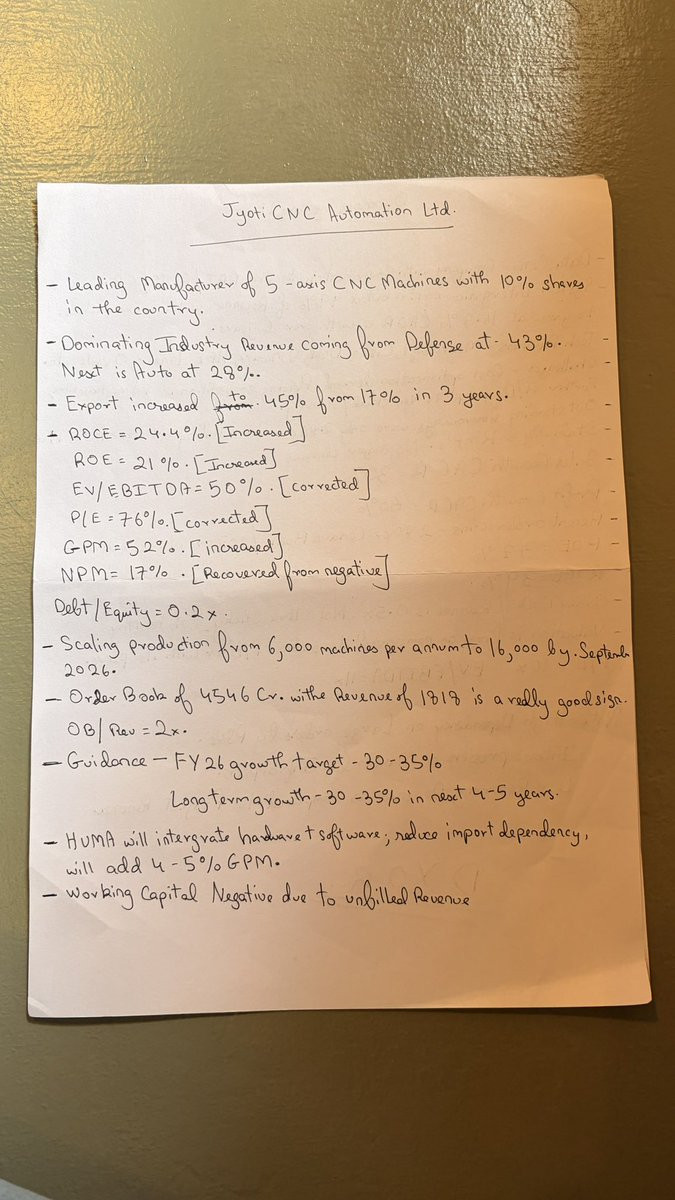 Jyoti CNC Automation Ltd.
- Leading Manufacturer of 5-axis CNC Machines with 10% shares
in the country.
- Dominating Industry Revenue coming from Defense at 43%.
Next is Auto at 28%.
- Export increased from to 45% from 17% in 3 years.
- ROCE = 24.4%. [Increased]
ROE = 21%. [Increased]
EV/EBITDA = 50%. [corrected]
P/E = 76%. [corrected]
GPM = 52%. [increased]
NPM = 17%. [Recovered from negative]
Debt/Equity = 0.2x.
- Scaling production from 6,000 machines per annum to 16,000 by. Septembe
2026.
- Order Book of 4546 Cr. withe Revenue of 1818 is a really good sign.
OB/Rev = 2x.
- Guidance - FY26 growth target - 30-35%
Longterm growth - 30-35% in next 4-5 years.
- HUMA will intergrate hardware + software; reduce import dependency,
will add 4-5% GPM.
- Working Capital Negative due to unbilled Revenue